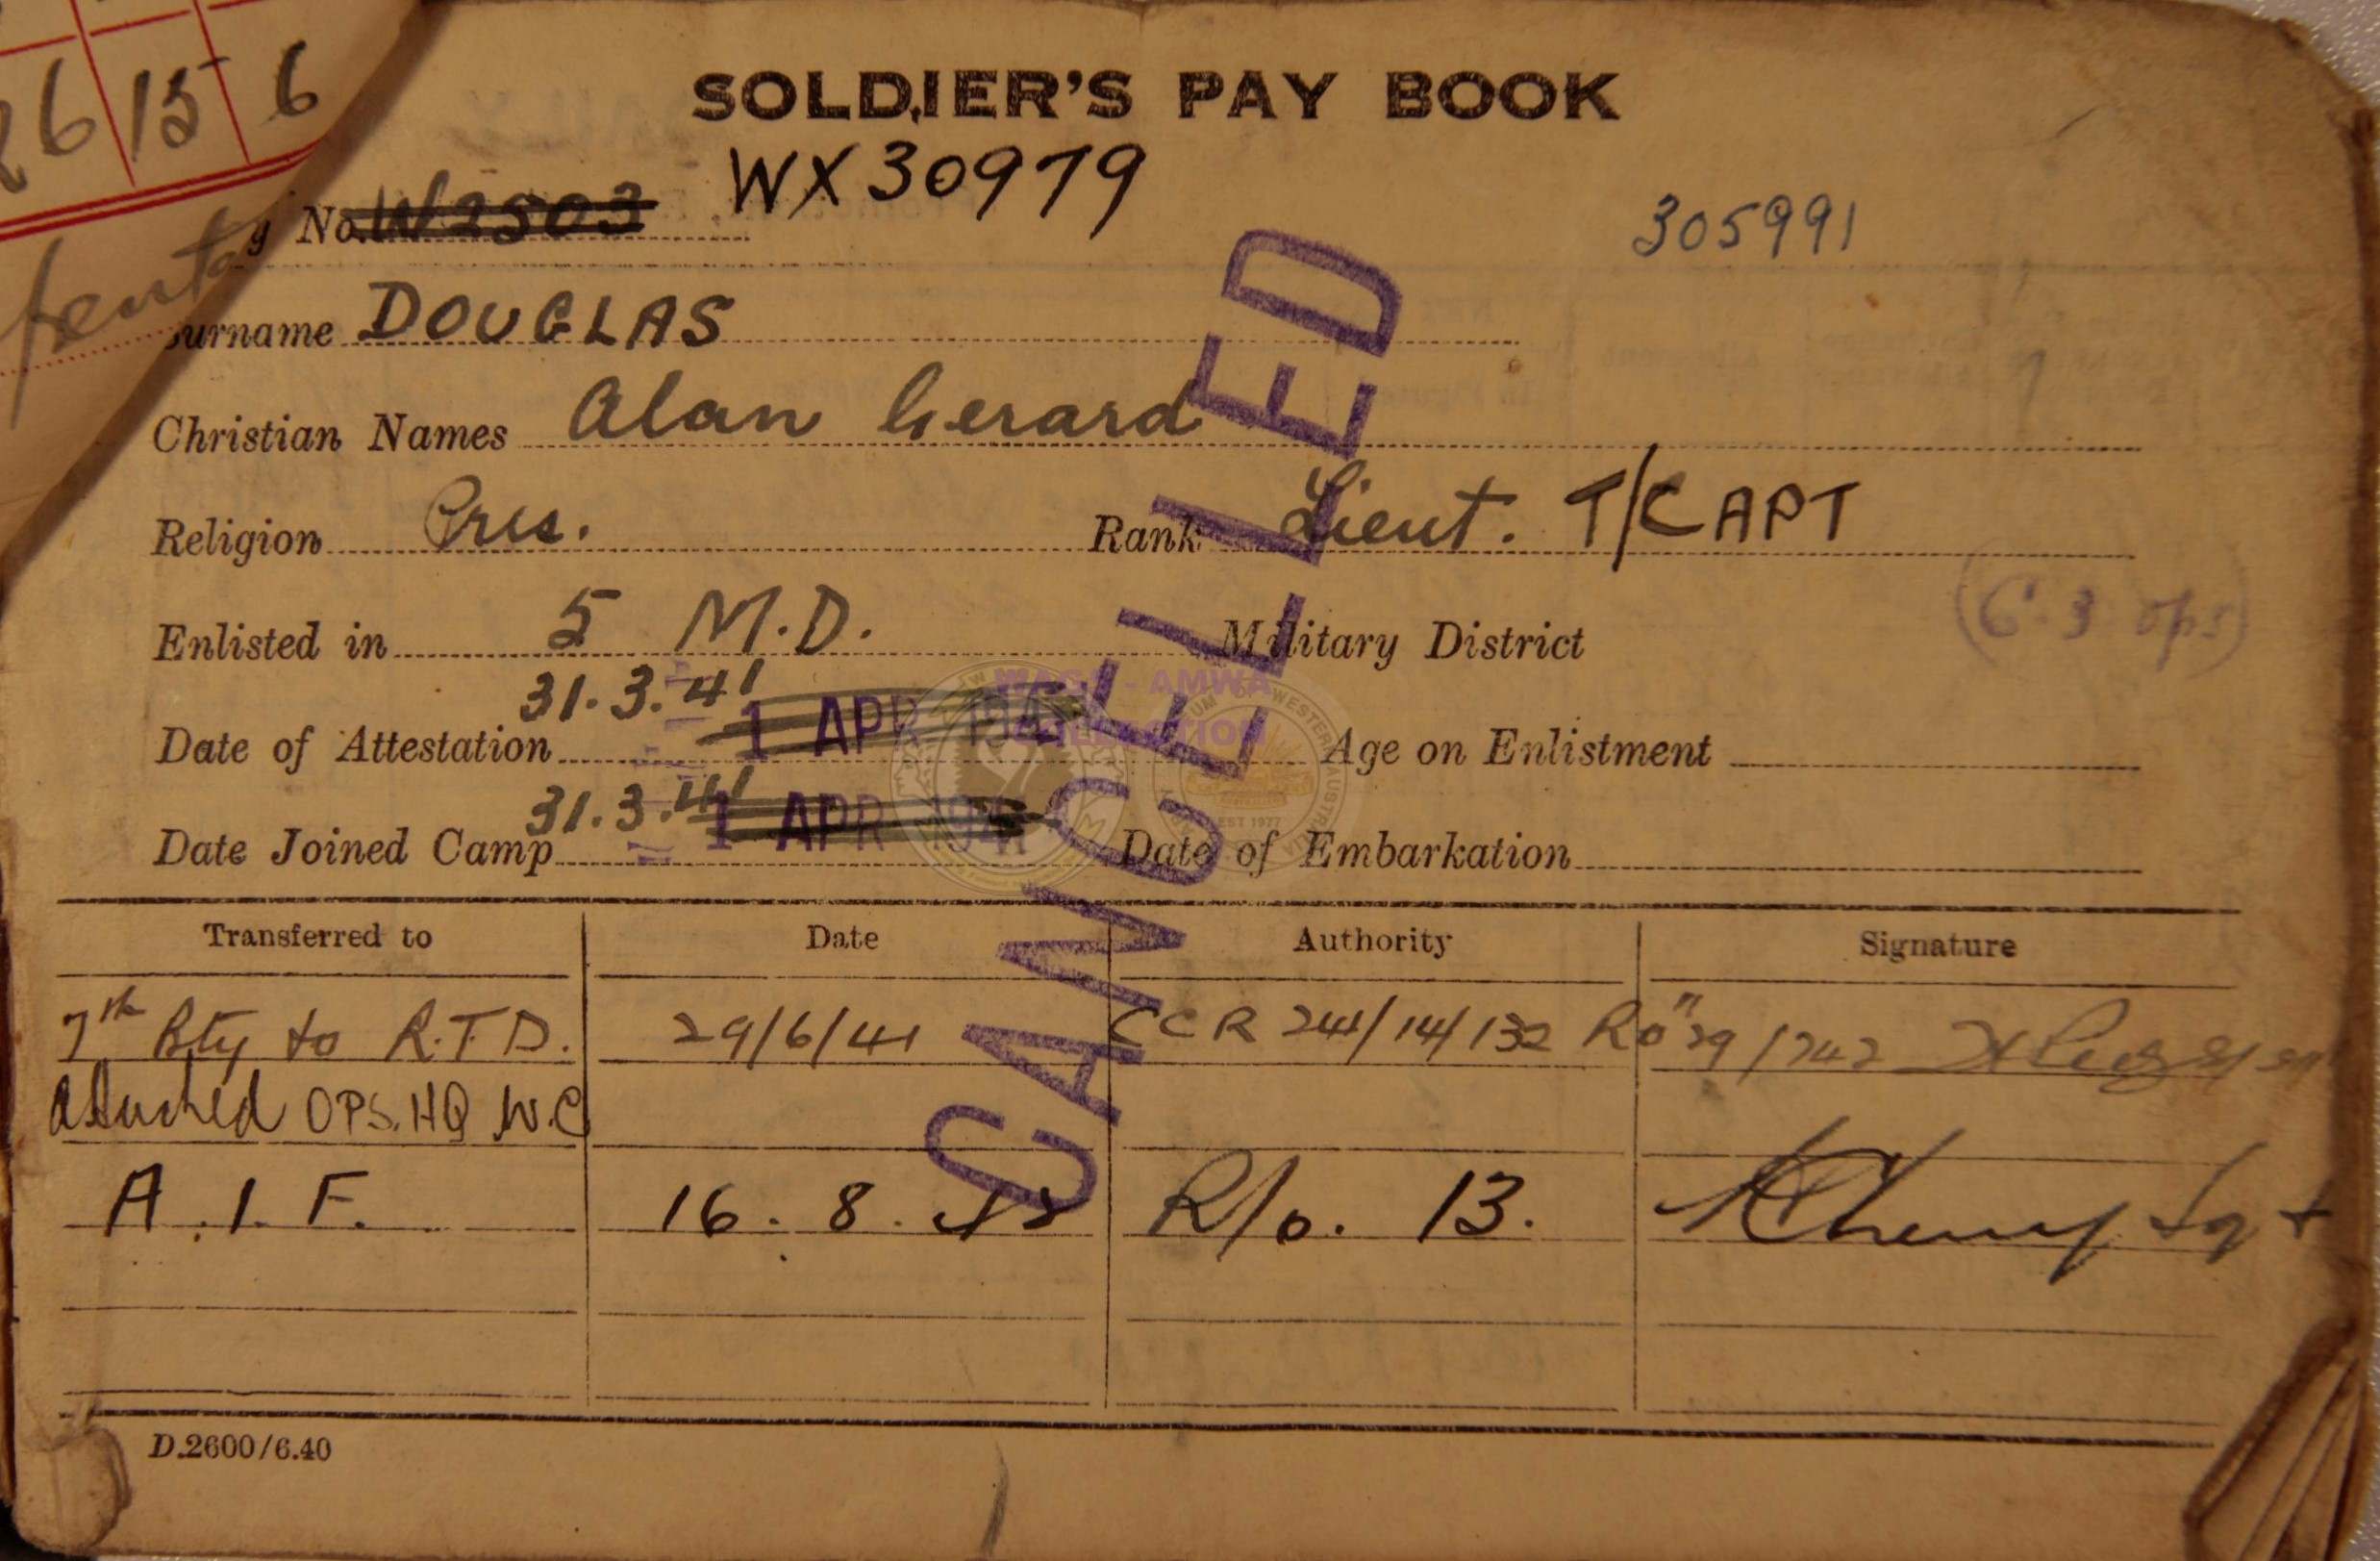 26 15 6
SOLDIER'S PAY BOOK
y No. W2503 WX30979
305991
urname DOUGLAS
Christian Names Alan Gerard
Religion Pres. Rank Lieut. T/CAPT
(G.3 ops)
Enlisted in 5 M.D. Military District
31.3.41
Date of Attestation 1 APR 1941 Age on Enlistment
31.3.41
Date Joined Camp 1 APR 1941 Date of Embarkation
CANCELLED
WAGS - AMWA
COLLECTION
EST 1977
Transferred to Date Authority Signature
7th Bty to R.T.D. 29/6/41 CCR 241/14/132 Ro "29/742
attached OPS.HQ W.C
A.I.F. 16.8.42 R/o. 13. Sgt
D.2600/6.40